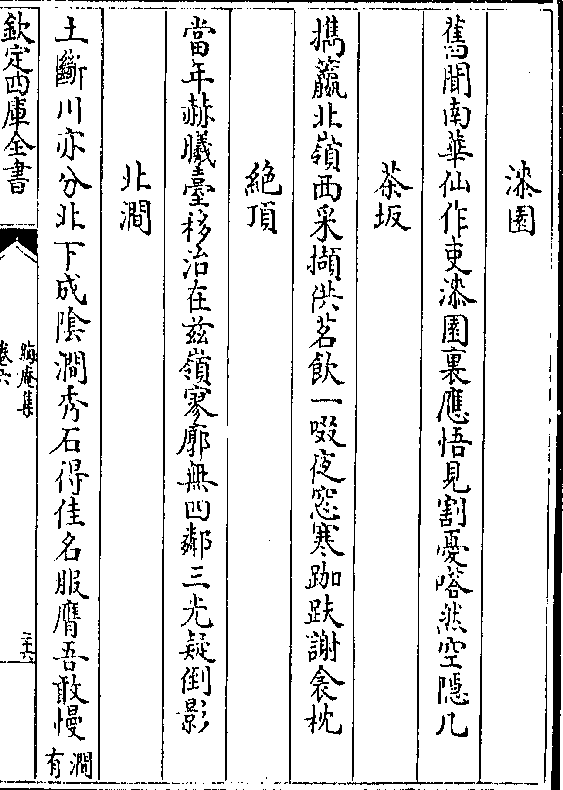 漆園
舊聞南華仙作吏漆園裏應悟見割憂嗒然空隱几
茶坂
攜籝北嶺西采擷供茗飲一啜夜窓寒跏趺謝衾枕
絶頂
當年赫曦臺移治在兹嶺寥廓無四鄰三光疑倒影
北澗
土斷川亦分北下成陰澗秀石得佳名服膺吾敢慢
澗
有
欽定四庫全書
晦庵集
卷六
二十六